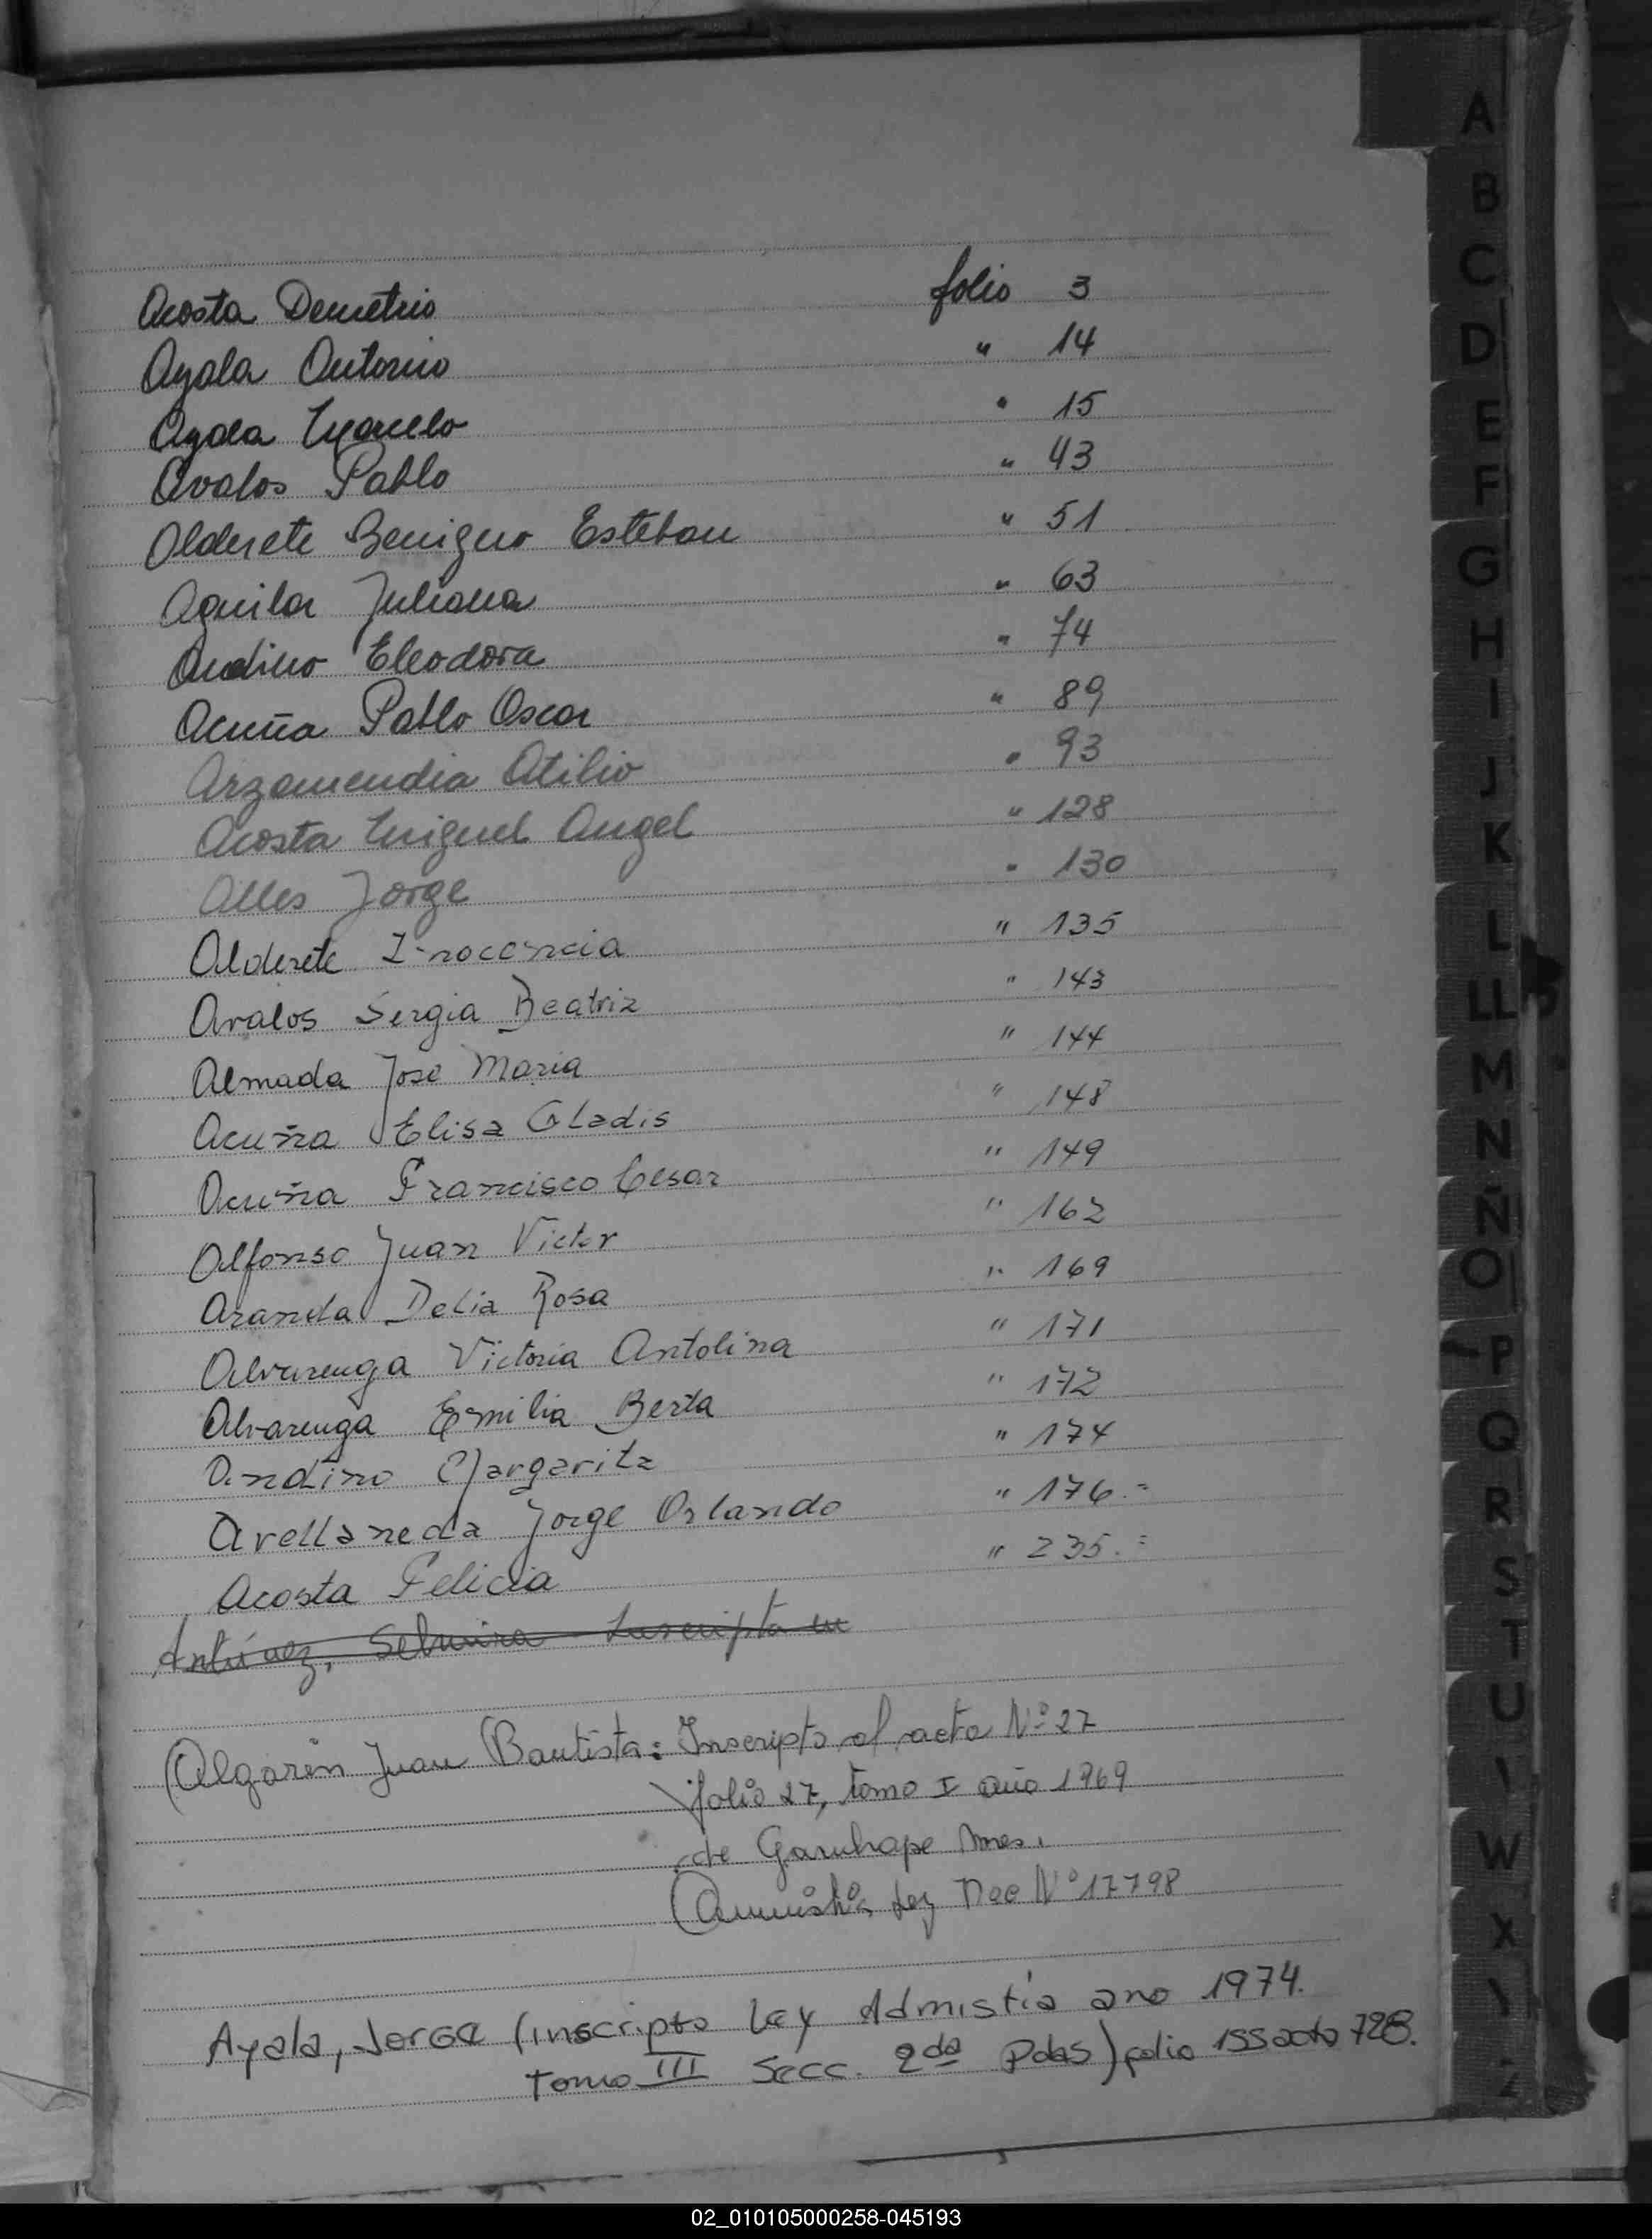 Acosta Demetrio folio 3
Ayala Antonio " 14
Ayala Marcelo " 15
Avalos Pablo " 43
Alderete Benigno Esteban " 51
Aguilar Juliana " 63
Andino Eleodora " 74
Acuña Pablo Oscar " 89
Arzamendia Atilio " 93
Acosta Miguel Angel " 128
Alles Jorge " 130
Alderete Inocencia " 135
Avalos Sergia Beatriz " 143
Almada Jose Maria " 144
Acuña Elisa Gladis " 148
Acuña Francisco Cesar " 149
Alfonso Juan Victor " 162
Aranda Delia Rosa " 169
Alvarenga Victoria Antolina " 171
Alvarenga Emilia Berta " 172
Andino Margarita " 174
Avellaneda Jorge Orlando " 176.=
Acosta Felicia " 235.=
Antúnez, Selmira Inscripta en
Algarin Juan Bautista: Inscripto al acta Nº 27
folio 27, tomo I año 1969
de Garuhape Mnes.
Amnistia Ley Nac Nº 17798
Ayala, Jorge (inscripto Ley Admistia ano 1974.
Tomo III Secc. 2da Pdas) folio 155 acta 728.
A
B
C
D
E
F
G
H
I
J
K
L
LL
M
N
Ñ
O
P
Q
R
S
T
U
W
X
Z
02_010105000258-045193